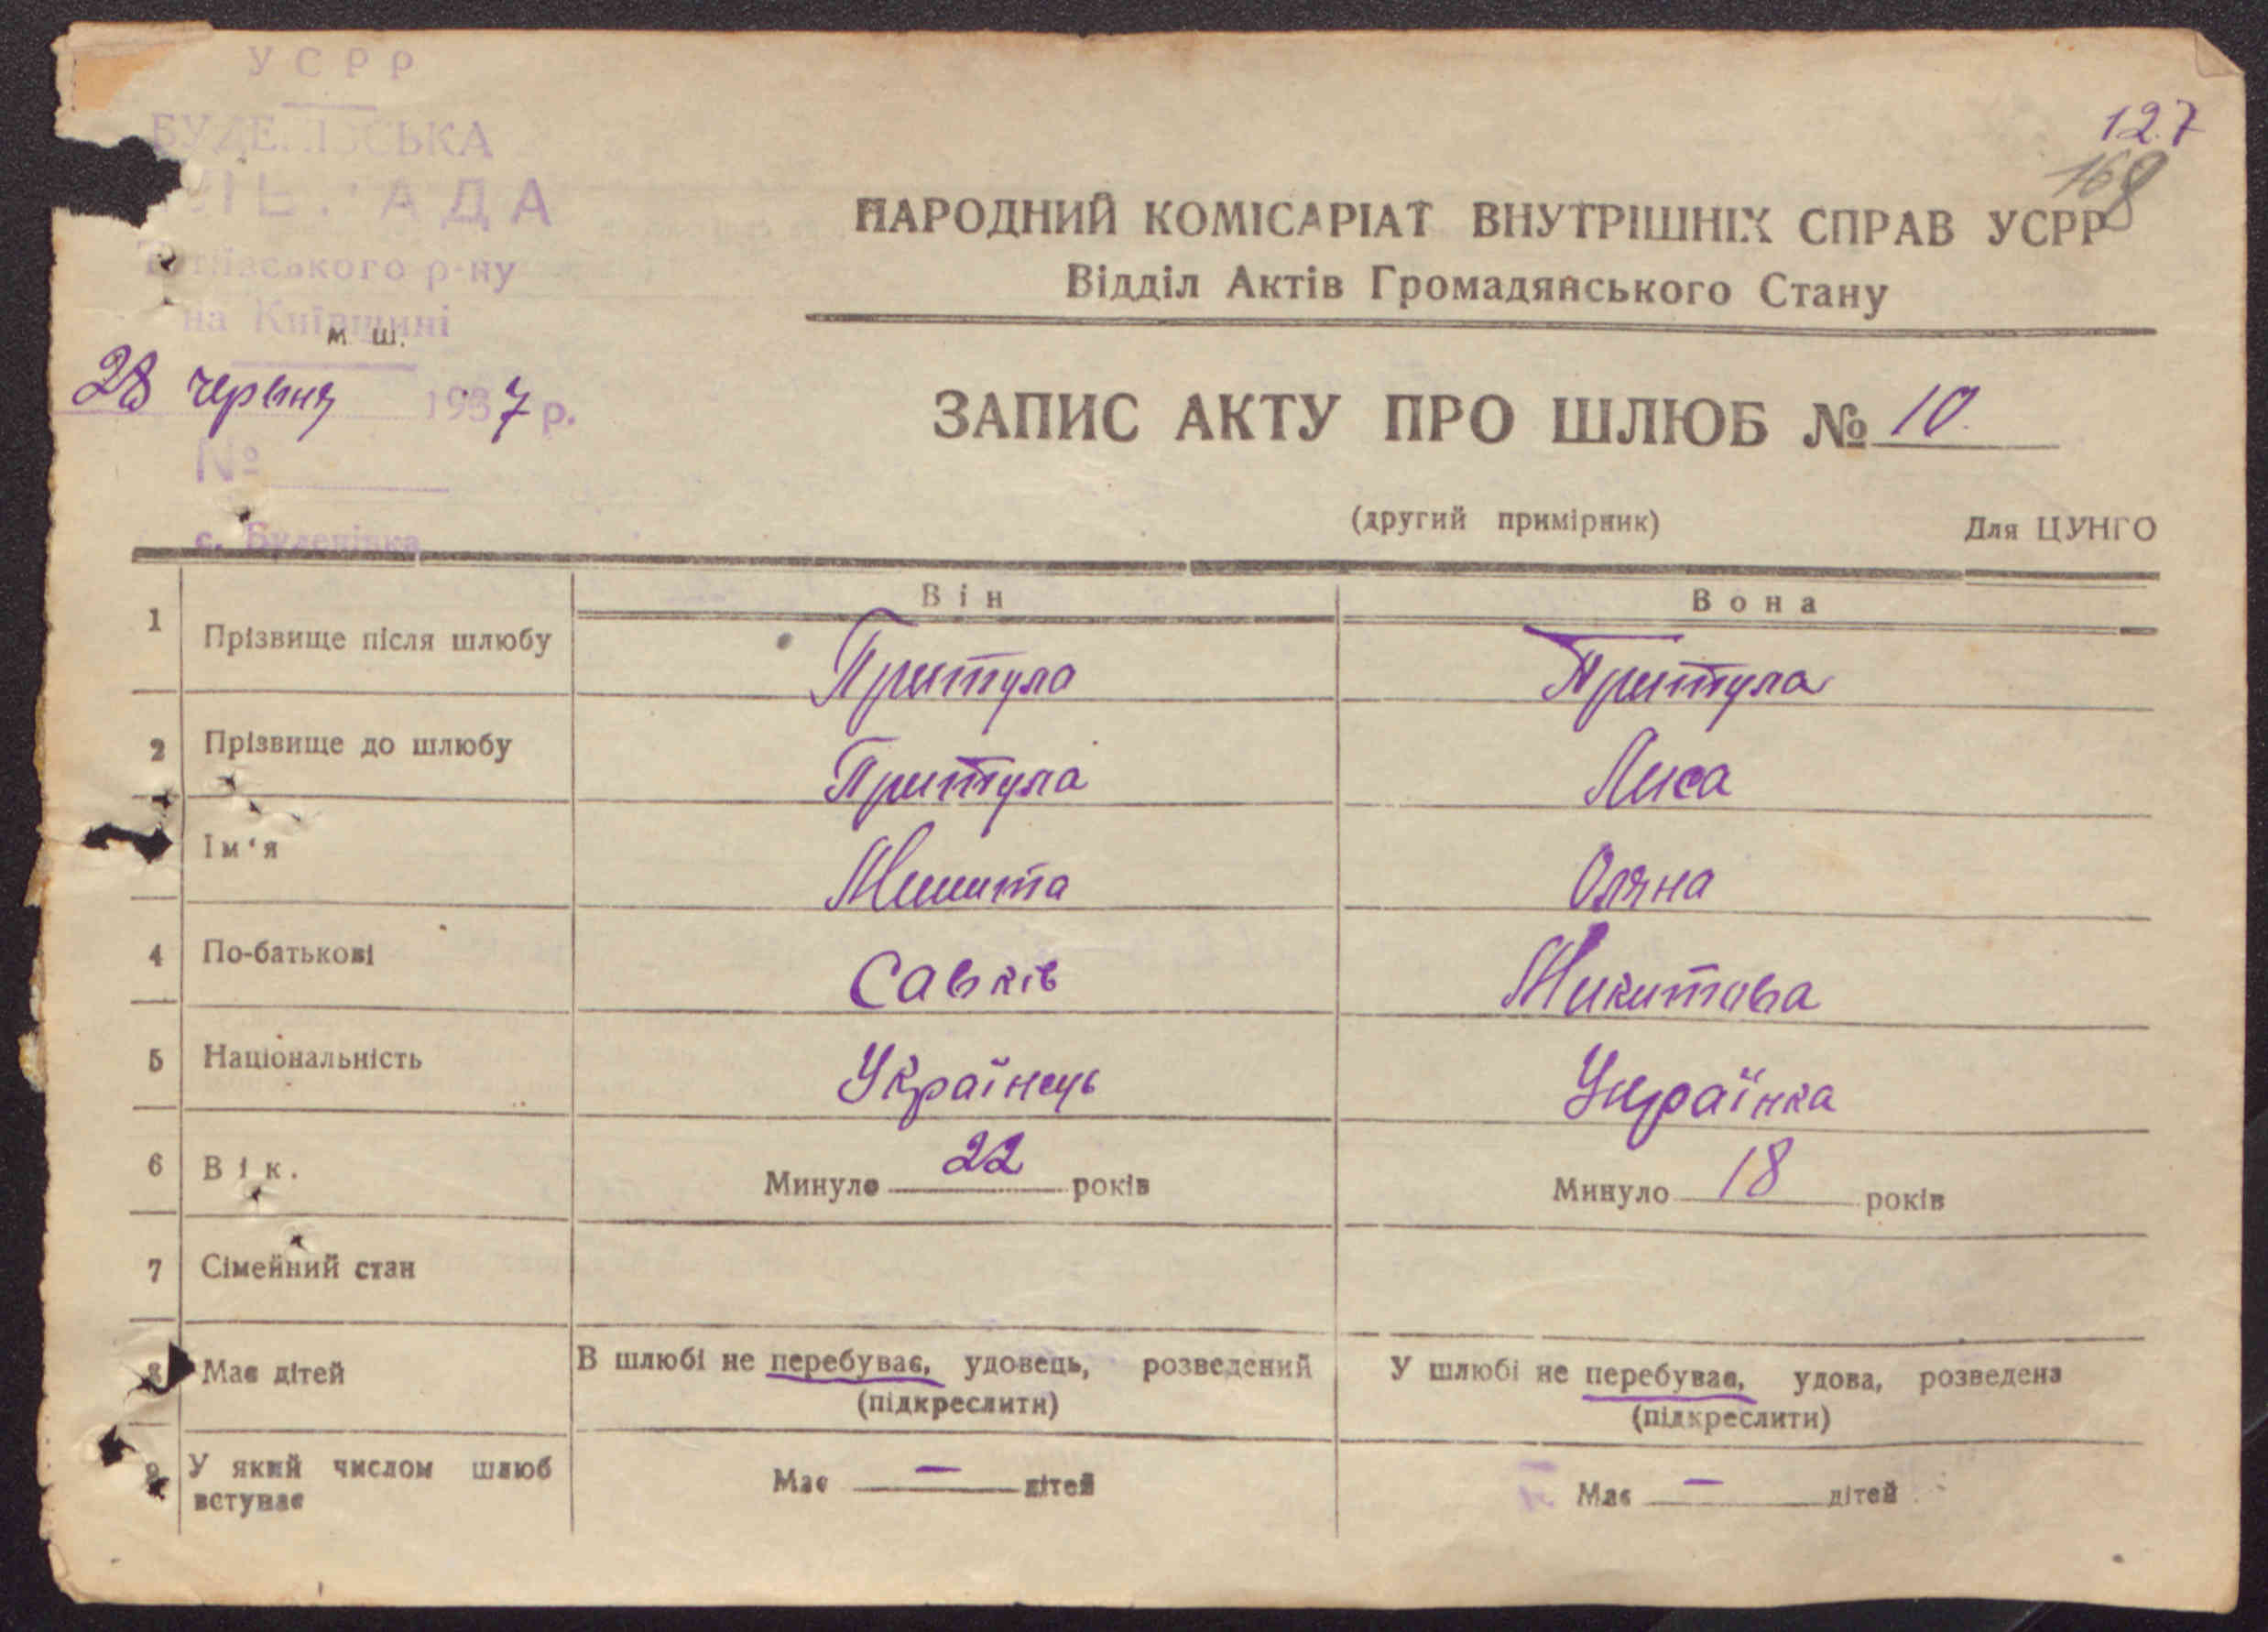 УСРР
127
168
НАРОДНИЙ КОМІСАРІАТ ВНУТРІШНІХ СПРАВ УСРР
Відділ Актів Громадянського Стану
р-ну
на Київщині
М. Ш.
28 червня 1937 р.
ЗАПИС АКТУ ПРО ШЛЮБ № 10
№
(другий примірник) Для ЦУНГО
с. Буденівка
Він Вона
1 Прізвище після шлюбу Притула Притула
2 Прізвище до шлюбу Притула Лиса
Ім'я Микита Оляна
4 По-батькові Савків Микитова
5 Національність Українець Українка
6 Вік. Минуло 22 років Минуло 18 років
7 Сімейний стан
8 Має дітей В шлюбі не перебуває, удовець, розведений У шлюбі не перебуває, удова, розведена
(підкреслити) (підкреслити)
9 У який числом шлюб вступає Має — дітей Має — дітей